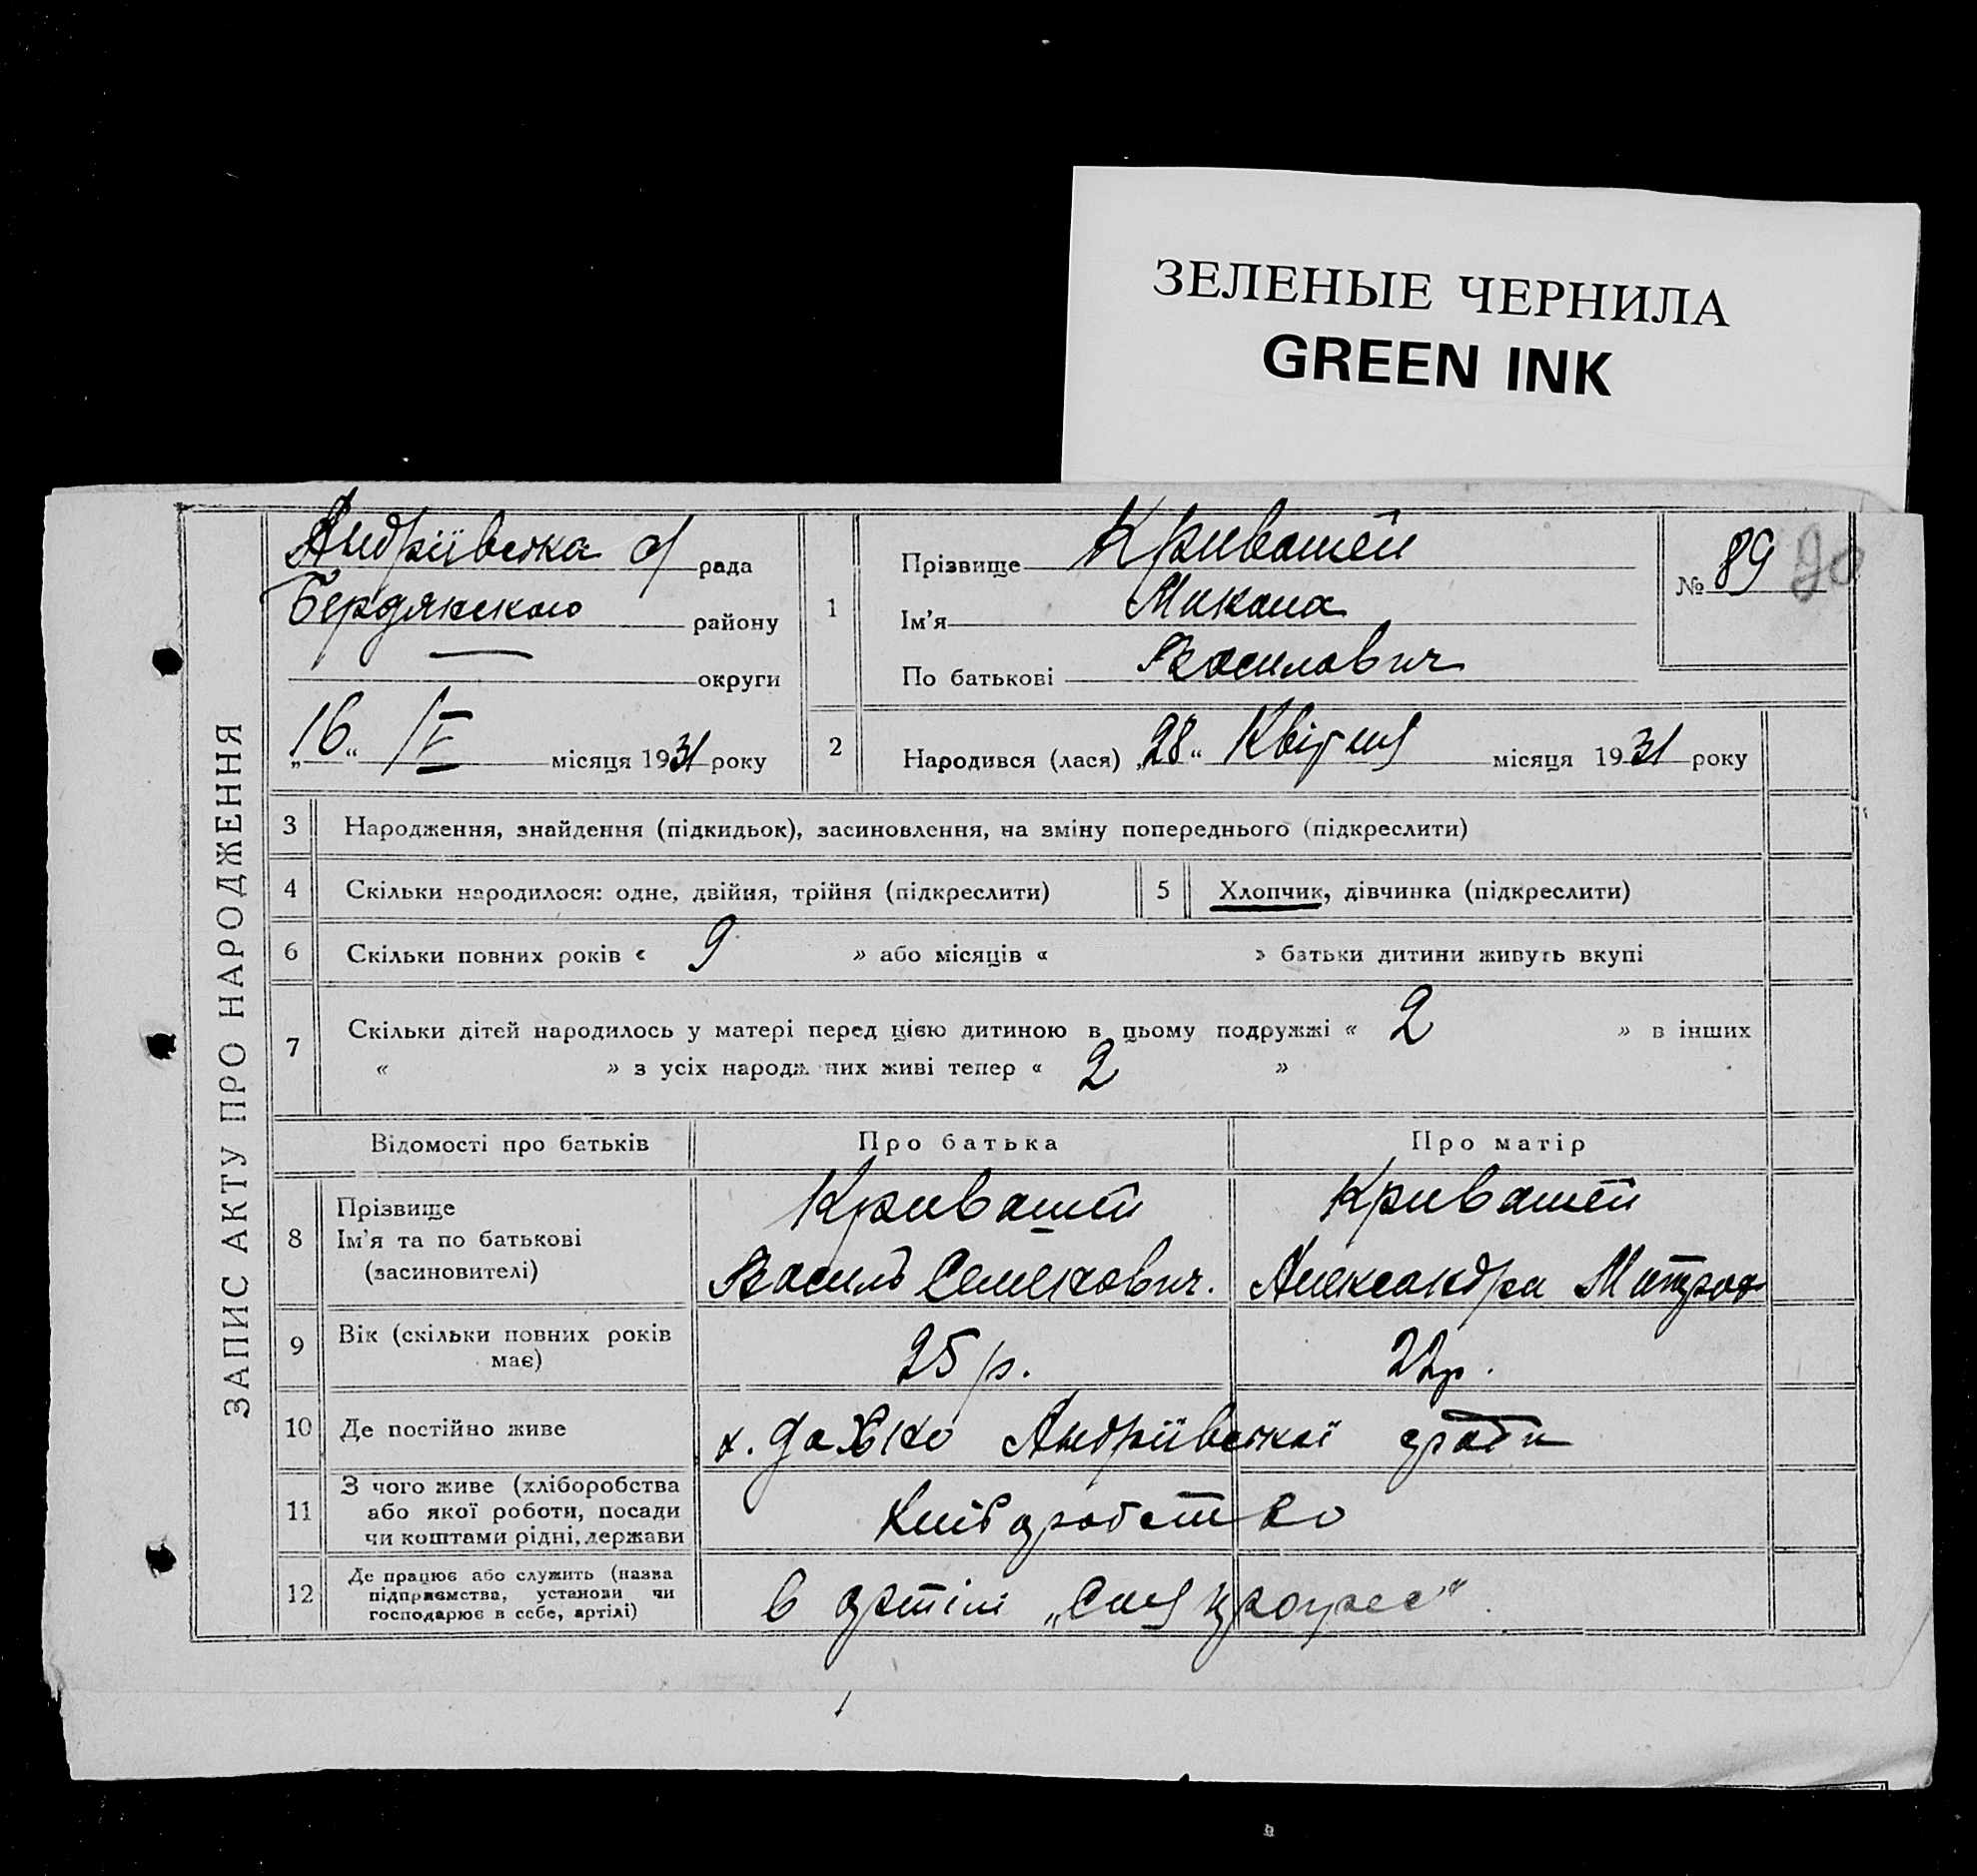 ЗЕЛЕНЫЕ ЧЕРНИЛА
GREEN INK
ЗАПИС АКТУ ПРО НАРОДЖЕННЯ
Андріівська с/рада
Бердянского району
— округи
„16“ /V місяця 1931 року
1
Прізвище Кривошей
Ім’я Микола
По батькові Василович
№ 89 90
2 Народився (лася) „28“ Квітня місяця 1931 року
3 Народження, знайдення (підкидьок), засиновлення, на зміну попереднього (підкреслити)
4 Скільки народилося: одне, двійня, трійня (підкреслити) 5 Хлопчик, дівчинка (підкреслити)
6 Скільки повних років « 9 » або місяців « » батьки дитини живуть вкупі
7 Скільки дітей народилось у матері перед цією дитиною в цьому подружжі « 2 » в інших
« » з усіх народж них живі тепер « 2 »
Відомості про батьків Про батька Про матір
8 Прізвище
Ім’я та по батькові
(засиновителі)
Кривошей
Василь Семенович.
Кривошей
Александра Митроф
9 Вік (скільки повних років
має)
25 р. 22 р.
10 Де постійно живе х. Андріївської с/ради
11 З чого живе (хліборобства
або якої роботи, посади
чи коштами рідні, держави
Хліборобство
12 Де працює або служить (назва
підприємства, установи чи
господарює в себе, артілі)
в артілі